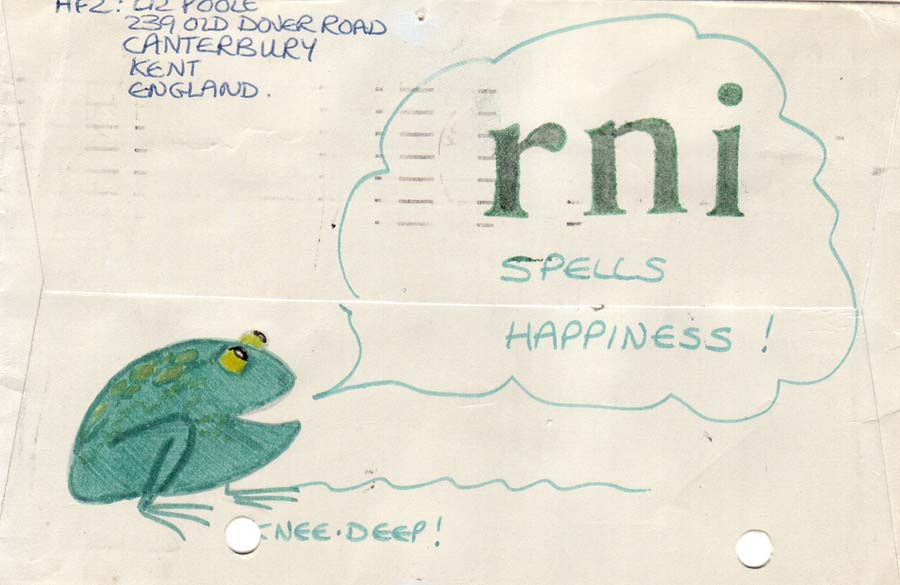 LIZ POOLE
239 OLD DOVER ROAD
CANTERBURY
KENT
ENGLAND.
rni
SPELLS
HAPPINESS!
KNEE-DEEP!